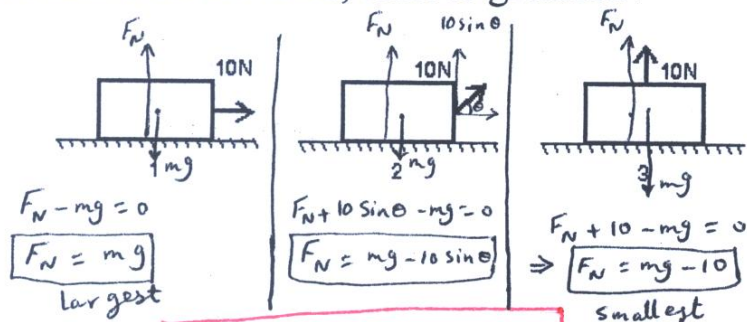 F_N
10N
1 mg
F_N - mg = 0
F_N = mg
largest
F_N 10 sin θ
10N
θ
2 mg
F_N + 10 sin θ - mg = 0
F_N = mg - 10 sin θ
F_N
10N
3 mg
F_N + 10 - mg = 0
⇒ F_N = mg - 10
smallest